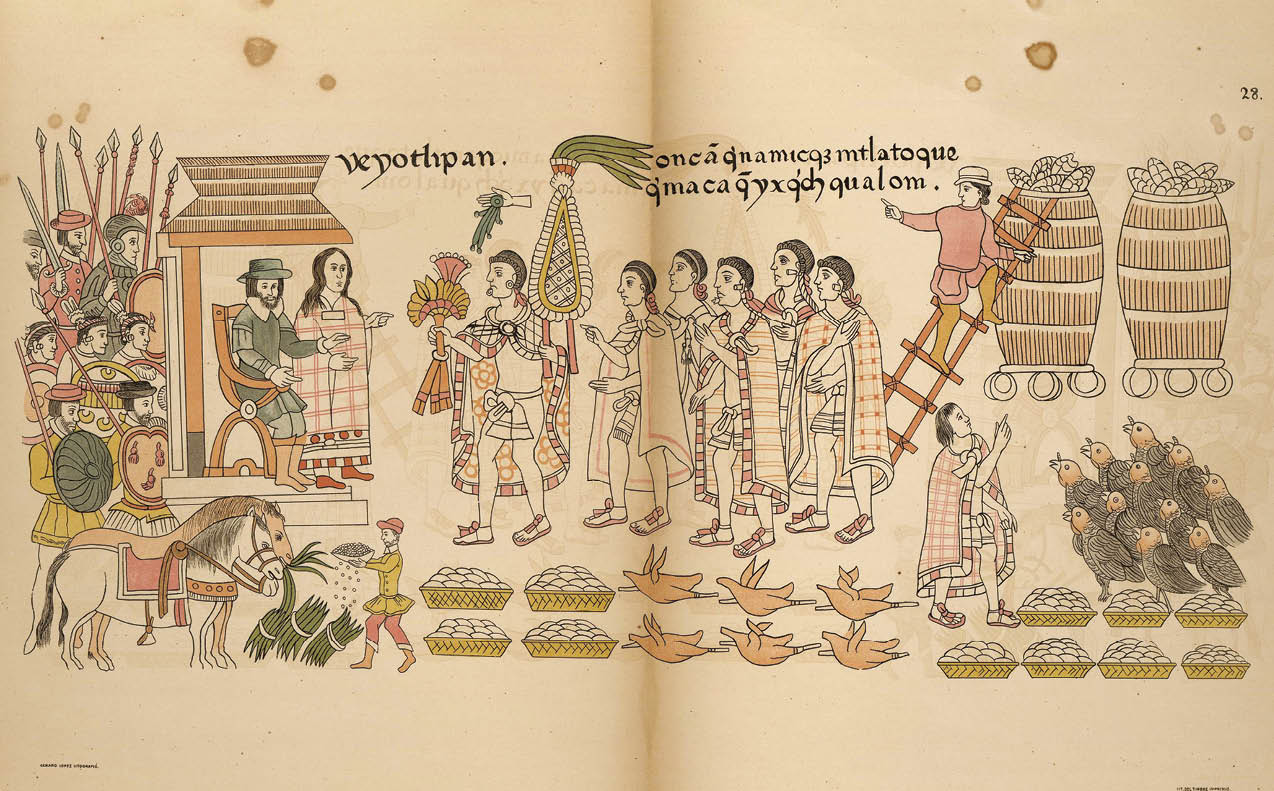 28.
veyotlipan.
oncã q̃namicqȝ mtlatoque
q̃maca q̃yxq̓ch qualom.
GENARO LOPEZ LITOGRAFIÓ.
LIT. DEL TIMBRE IMPRIMIÓ.